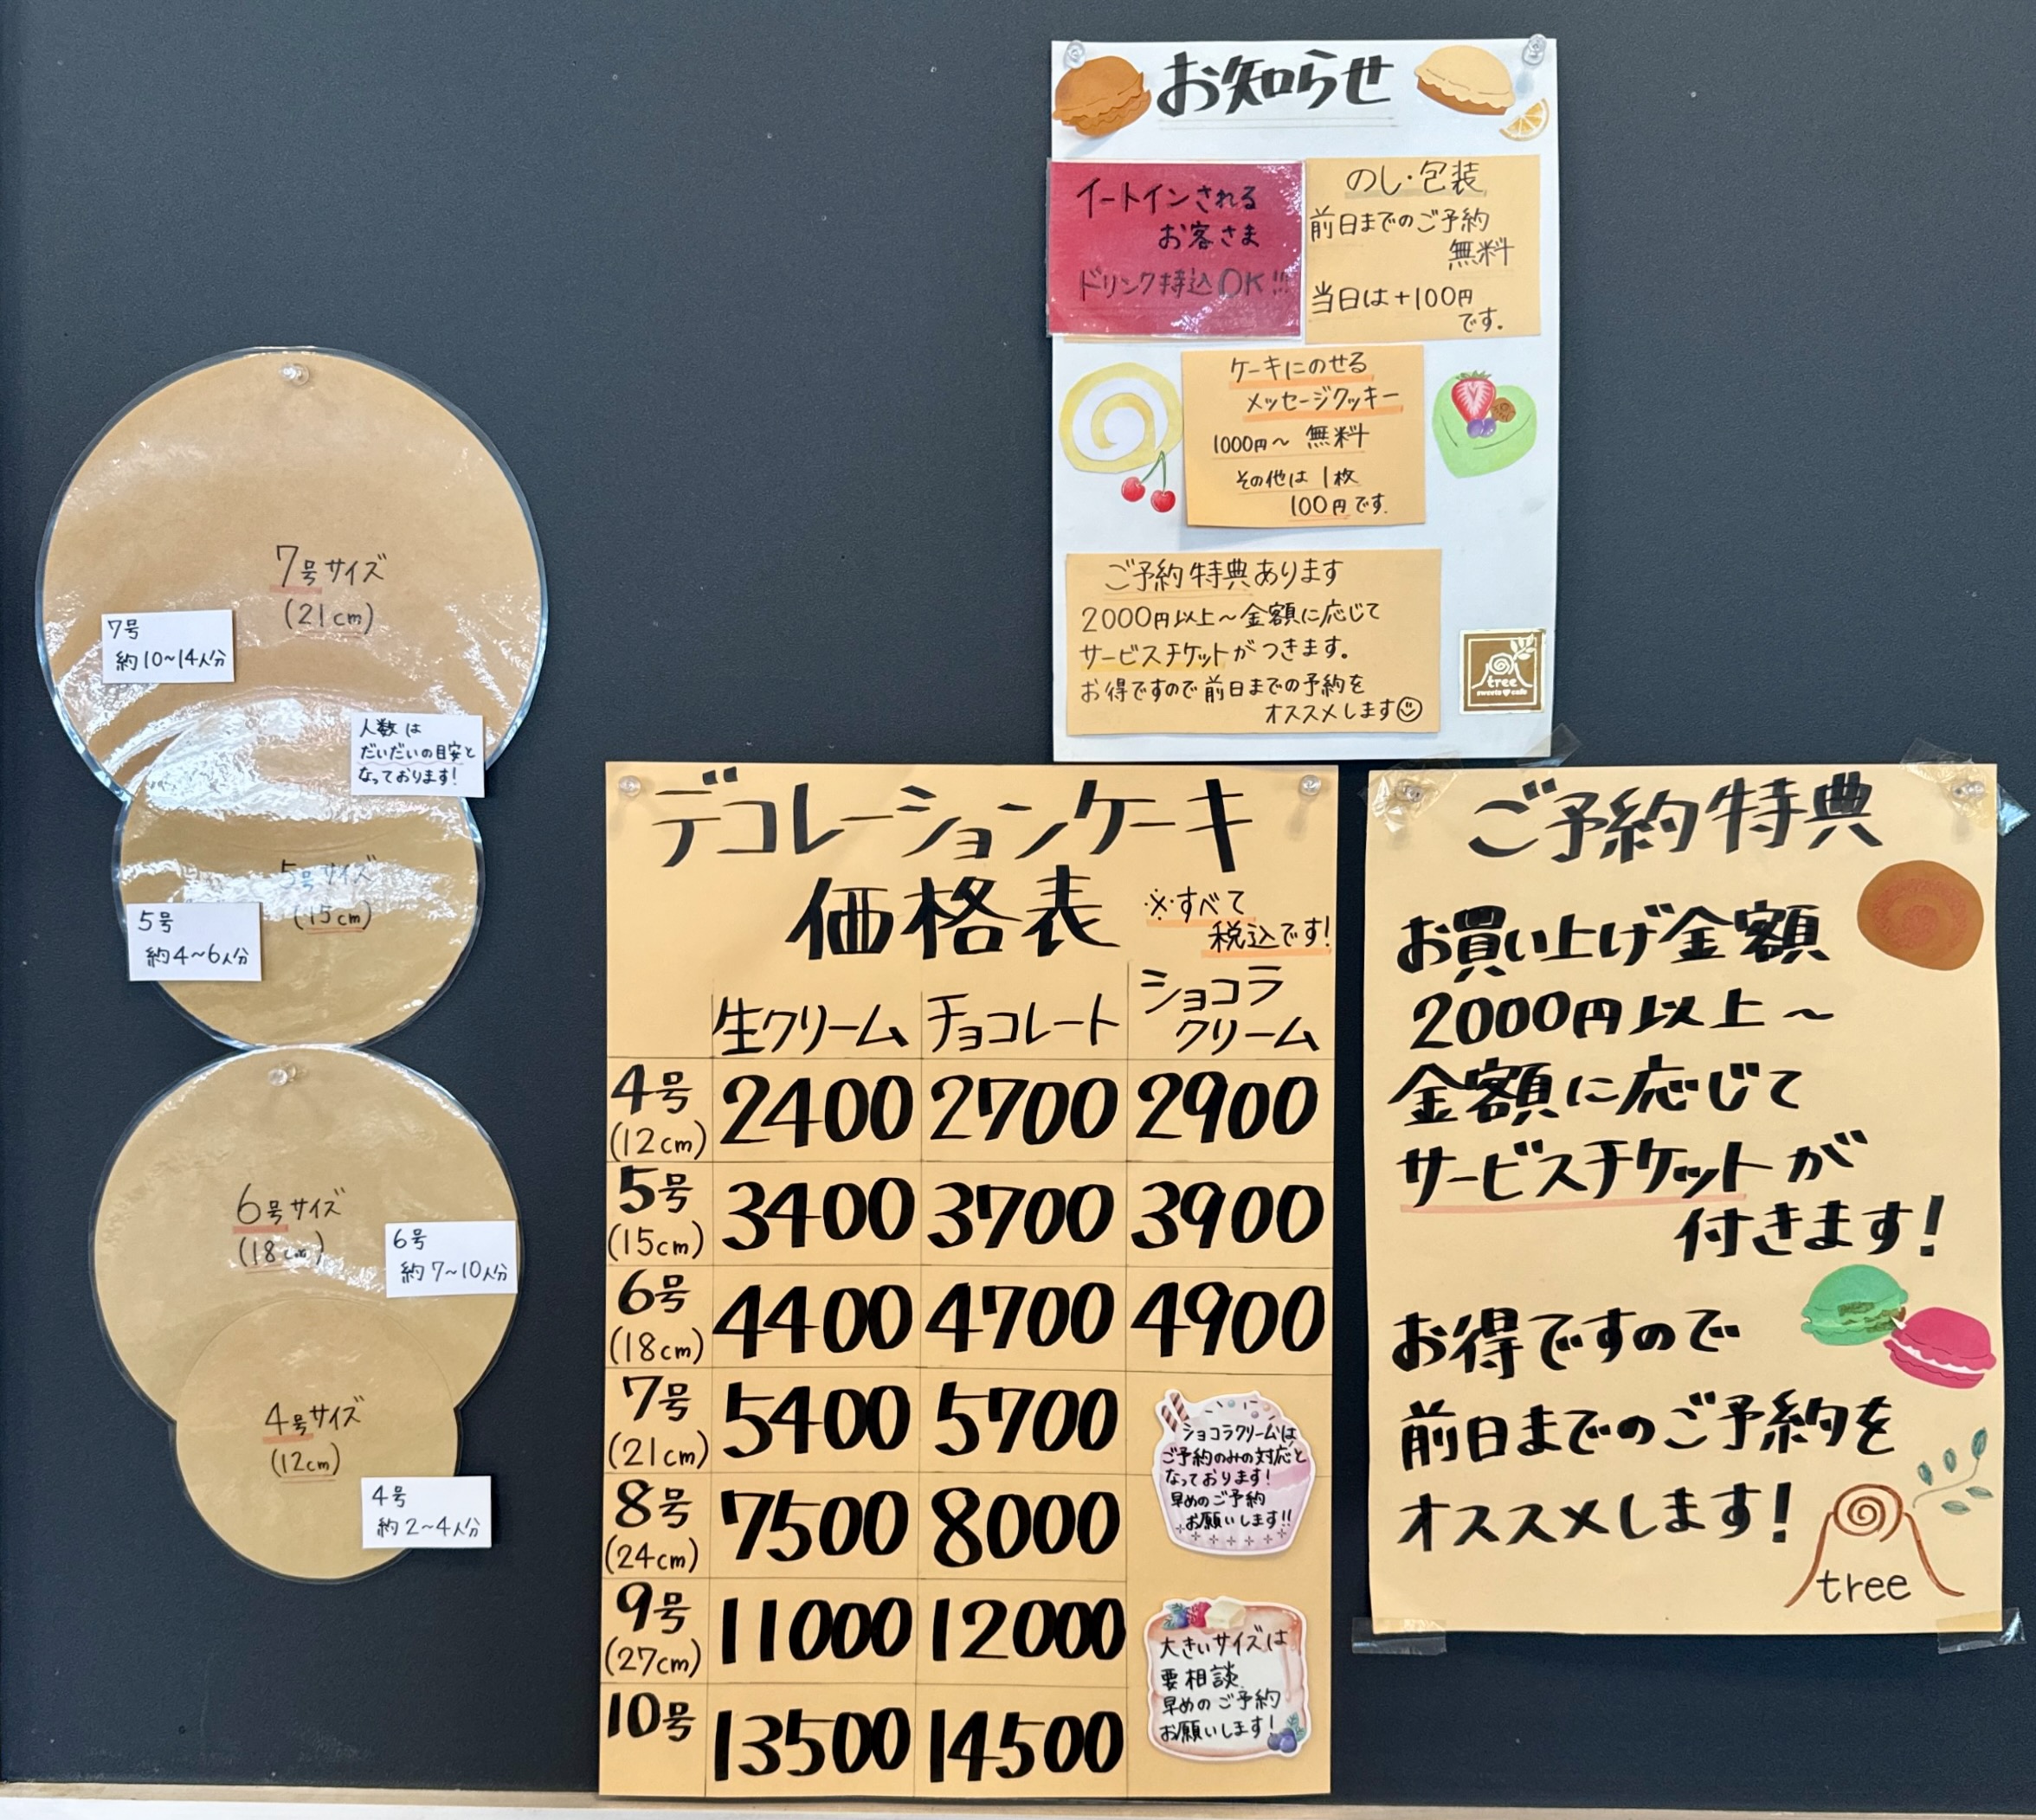 お知らせ
イートインされる
お客さま
ドリンク持込OK!!!
のし・包装
前日までのご予約
無料
当日は+100円
です。
ケーキにのせる
メッセージクッキー
1000円〜 無料
その他は 1枚
100円です.
ご予約特典あります
2000円以上〜金額に応じて
サービスチケットがつきます。
お得ですので前日までの予約を
オススメします
tree
sweets♥cafe
7号サイズ
(21cm)
7号
約10〜14人分
人数は
だいだいの目安と
なっております!
5号サイズ
(15cm)
5号
約4〜6人分
6号サイズ
(18cm)
6号
約7〜10人分
4号サイズ
(12cm)
4号
約2〜4人分
デコレーションケーキ
価格表 ※すべて
税込です!
生クリーム チョコレート ショコラ
クリーム
4号 2400 2700 2900
(12cm)
5号 3400 3700 3900
(15cm)
6号 4400 4700 4900
(18cm)
7号 5400 5700
(21cm)
8号 7500 8000
(24cm)
9号 11000 12000
(27cm)
10号 13500 14500
ショコラクリームは
ご予約のみの対応と
なっております!
早めのご予約
お願いします!!
大きいサイズは
要相談
早めのご予約
お願いします!
ご予約特典
お買い上げ金額
2000円以上〜
金額に応じて
サービスチケットが
付きます!
お得ですので
前日までのご予約を
オススメします!
tree